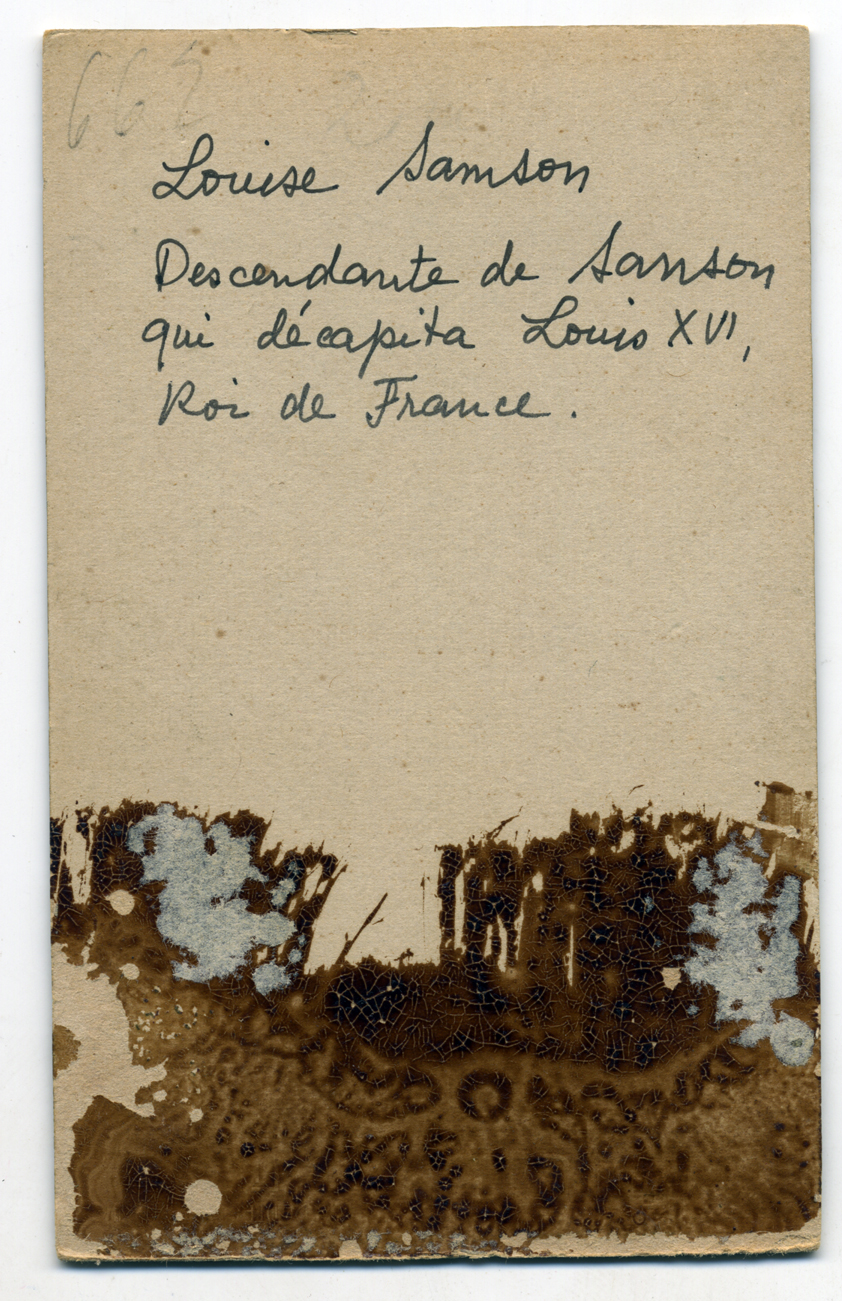 662
Louise Samson
Descendante de Sanson
qui décapita Louis XVI,
Roi de France.